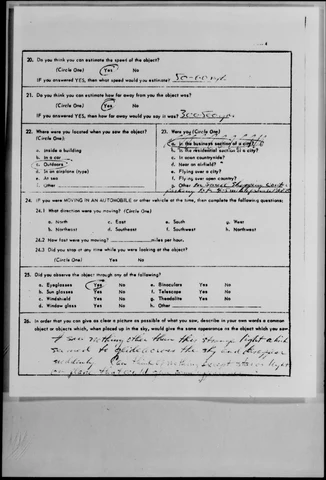 20. Do you think you can estimate the speed of the object?
(Circle One) Yes No
IF you answered YES, then what speed would you estimate?
21. Do you think you can estimate how far away from you the object was?
(Circle One) Yes No
IF you answered YES, then how far away would you say it was? 300-500 yds
22. Where were you located when you saw the object?
(Circle One):
a. Inside a building
b. In a car
c. Outdoors
d. In an airplane (type)
e. At sea
f. Other
23. Were you (Circle One)
a. In the business section of a city?
b. In the residential section of a city?
c. In open countryside?
d. Near an airfield?
e. Flying over a city?
f. Flying over open country?
g. Other
24. IF you were MOVING IN AN AUTOMOBILE or other vehicle at the time, then complete the following questions:
24.1 What direction were you moving? (Circle One)
a. North c. East e. South g. West
b. Northeast d. Southeast f. Southwest h. Northwest
24.2 How fast were you moving? miles per hour.
24.3 Did you stop at any time while you were looking at the object?
(Circle One) Yes No
25. Did you observe the object through any of the following?
a. Eyeglasses Yes No e. Binoculars Yes No
b. Sun glasses Yes No f. Telescope Yes No
c. Windshield Yes No g. Theodolite Yes No
d. Window glass Yes No h. Other
26. In order that you can give as clear a picture as possible of what you saw, describe in your own words a common
object or objects which, when placed up in the sky, would give the same appearance as the object which you saw.
I saw nothing other than this strange light which
seemed to glide across the sky and disappear
suddenly. Can think of nothing except